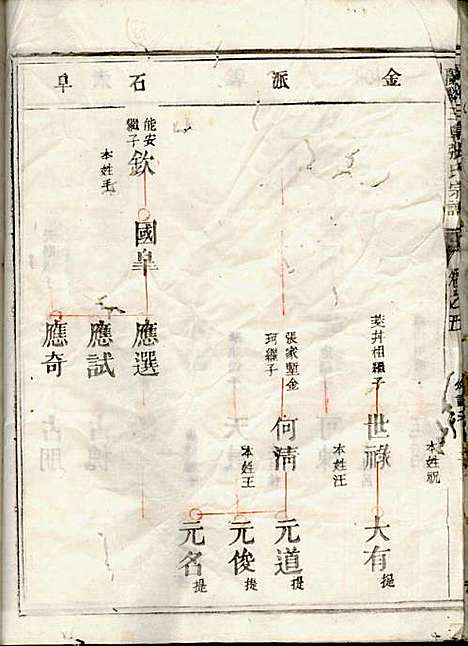 金派
石阜
張氏宗譜
卷之五
本姓祝
菱井相繼子
世祿
大有
提
本姓汪
張家塹金
珂繼子
何清
元道
提
本姓王
元俊
提
元名
提
能安
繼子
欽
本姓毛
國皐
應選
應試
應奇